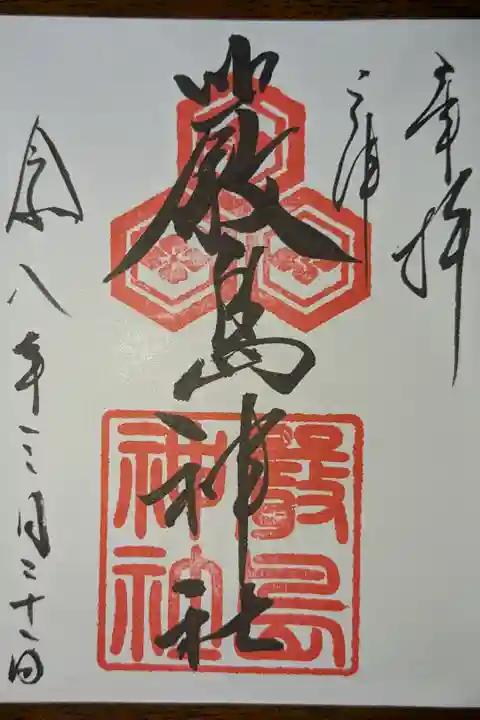 奉拝
三津
嚴島神社
令和八年三月二十一日
嚴島
神社